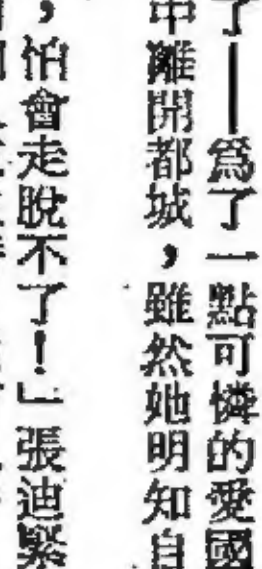 了——爲了一點可憐的愛國
中離開都城，雖然她明知自
，怕會走脫不了！」張迪緊